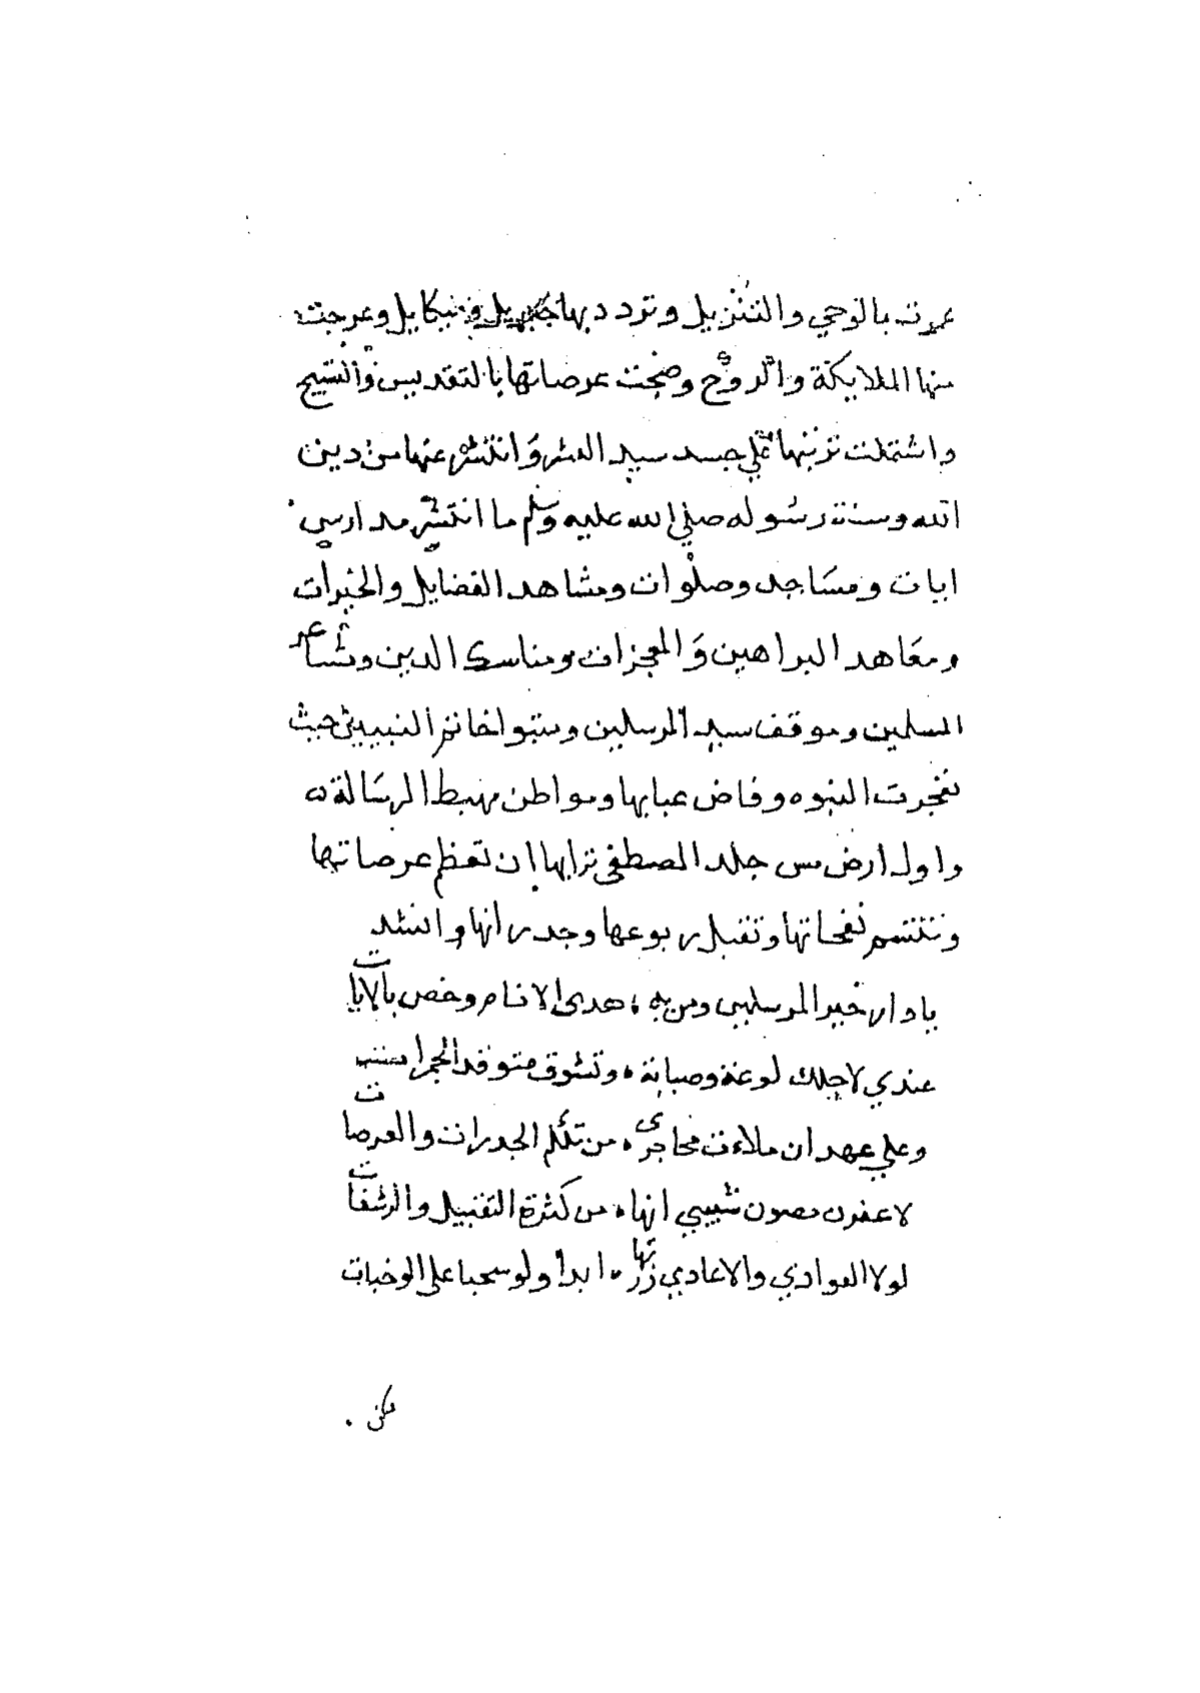 عمرت بالوحي والتنزيل وتردد بها جبريل وميكايل وعرجت
منها الملايكة والروح وضجت عرصاتها بالتقديس والتسبيح
واشتملت تربتها علي جسد سيد البشر وانتشر عنها من دين
الله وسنة رسوله صلي الله عليه وسلم ما انتشر مدارس
ايات ومساجد وصلوات ومشاهد الفضايل والخيرات
ومعاهد البراهين والمعجزات ومناسك الدين ومشاعر
المسلمين وموقف سيد المرسلين ومتبوا خاتم النبيين حيث
تفجرت النبوه وفاض عبابها ومواطن مهبط الرسالة
واول ارض مس جلد المصطفى ترابها ان تعظم عرصاتها
وتتنسم نفحاتها وتقبل ربوعها وجدرانها وانشد
يا دار خير المرسلين ومن به هدى الانام وخص بالايات
عندي لاجلك لوعة وصبابة وتشوق متوقد الجمرات
وعلي عهد ان ملاءت محاجري من تلكم الجدرات والعرصات
لاعفرن مصون شيبي انها من كثرة التقبيل والرشفات
لولا العوادي والاعادي زرتها ابدا ولو سحبا على الوجنات
لكن